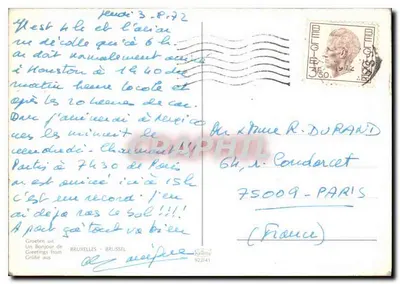 Jeudi 3-8-72
Il est 4h et l'avion
ne décolle qu'à 6h.
on doit normalement arriver
à Houston à 1h40 du
matin heure locale et
après les 20 heures de car.
Donc j'arriverai à Mexico
vers les minuit le
vendredi. Charmant!
Partis à 7h30 de Paris
on est arrivé ici à 15h
c'est un record! J'en
ai déjà ras le bol!!!!
A part ça tout va bien
Mr. Mme R. DURAND
64, r. Condorcet
75009 - PARIS
(France)
BELGIE-BELGIQUE
3F50
Groeten uit
Un Bonjour de
Greetings from
Grüße aus
BRUXELLES - BRUSSEL
CARAPHIL